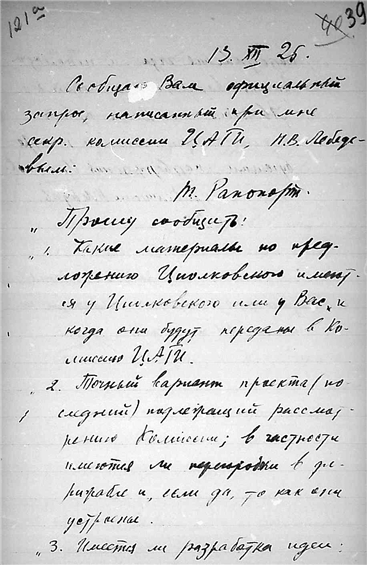 121а
40 39
13 XII 25.
Сообщаю Вам официальный
запрос, написанный при мне
секр. комиссии ЦАГИ, Н.В. Лебеде-
вым:
Т. Рапопорт.
„Прошу сообщить:
„1. Какие материалы по пред-
ложению Циолковского имеют-
ся у Циолковского или у Вас, и
когда они будут переданы в Ко-
миссию ЦАГИ.
„2. Точный вариант проекта (по-
следний) подлежащий рассмот-
рению Комиссии; в частности
имеются ли перегородки в ди-
рижабле и, если да, то как они
устроены.
„3. Имеется ли разработка идеи: